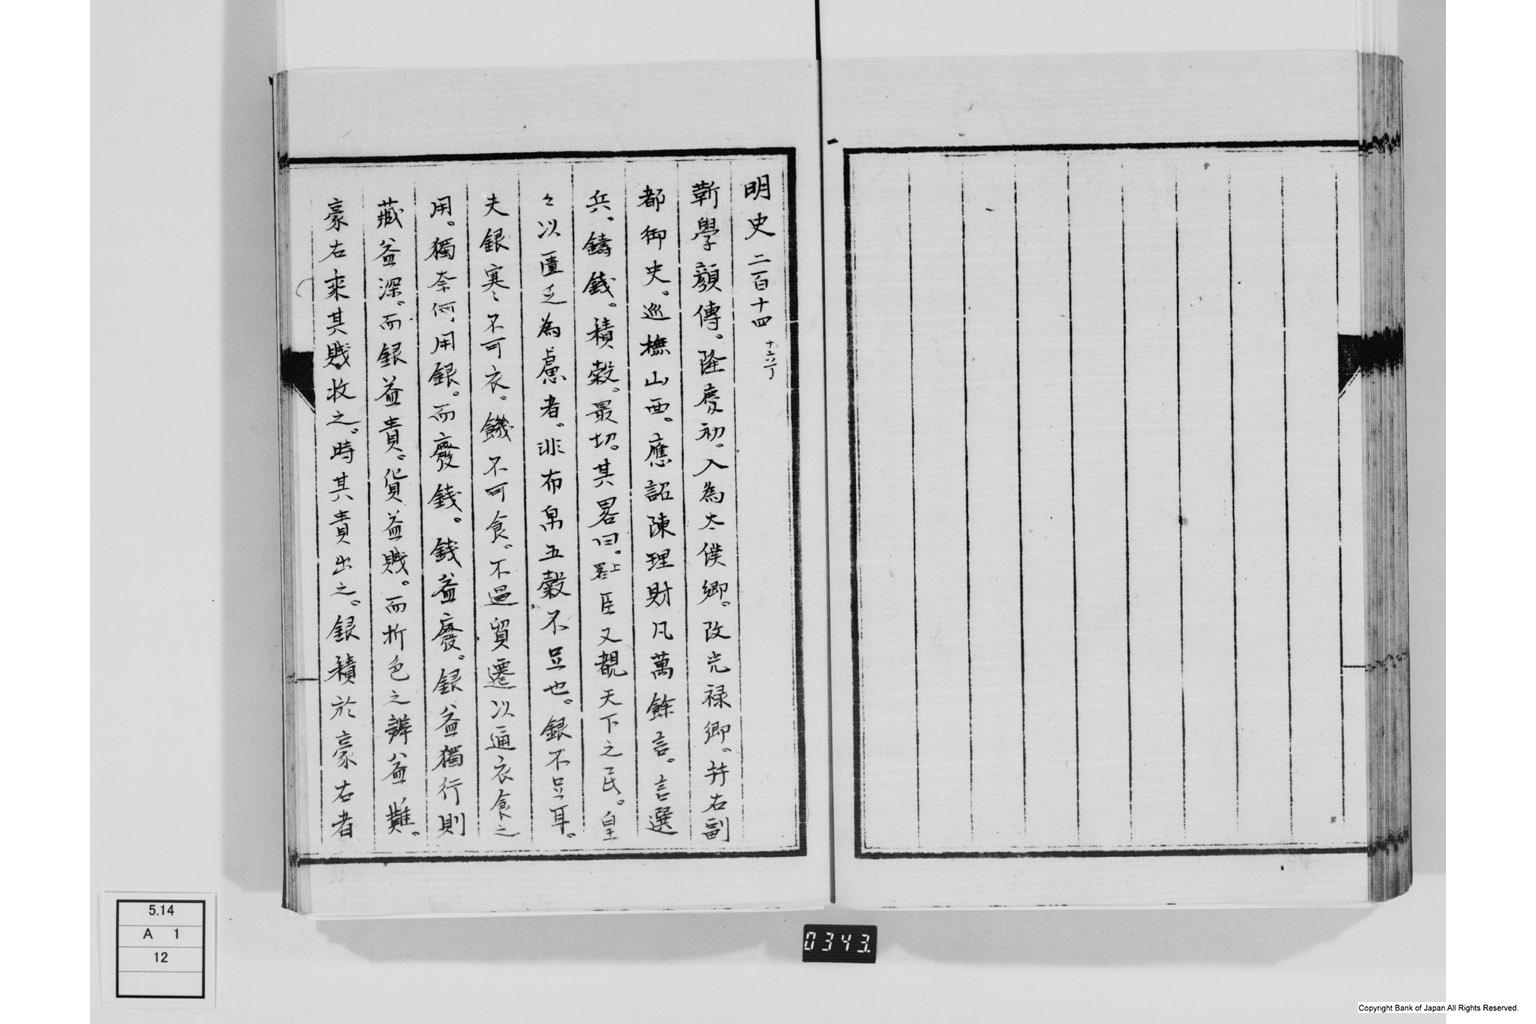 明史 二百十四 十六丁
靳學顔傳。隆慶初。入為太僕卿。改光禄卿。并右副
都御史。巡撫山西。應詔陳理財凡萬餘言。言選
兵、鑄錢。積穀。最切。其畧曰。上畧 臣又覩天下之民。皇
々以匱乏為慮者。非布帛五穀不足也。銀不足耳。
夫銀寒、不可衣。饑不可食。不過貿遷以通衣食之
用。獨奈何、用銀。而廢錢。錢益廢。銀益獨行則
藏益深。而銀益貴。貨益賤。而折色之辨益難。
豪右乘其賤收之。時其貴出之。銀積於豪右者
5.14
A 1
12
0343.
Copyright Bank of Japan All Rights Reserved.